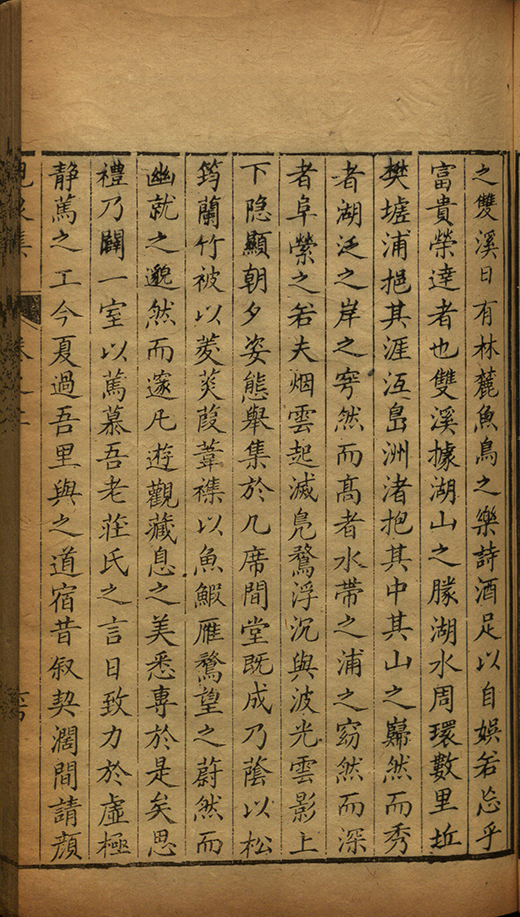 之雙溪日有林麓魚鳥之樂詩酒足以自娛若忘乎
富貴榮達者也雙溪據湖山之勝湖水周環數里坵
樊墟浦挹其涯洰島洲渚抱其中其山之巋然而秀
者湖泛之岸之穹然而高者水帶之浦之窈然而深
者阜縈之若夫烟雲起滅鳧鶩浮沉與波光雲影上
下隐顯朝夕姿態舉集於几席間堂既成乃蔭以松
筠蘭竹被以菱芡葭葦襍以魚鰕雁鶩望之蔚然而
幽就之邈然而邃凡遊觀藏息之美悉專於是矣思
禮乃闢一室以篤慕吾老莊氏之言日致力於虛極
静篤之工今夏過吾里與之道宿昔叙契濶間請顔
峴泉集 卷之三